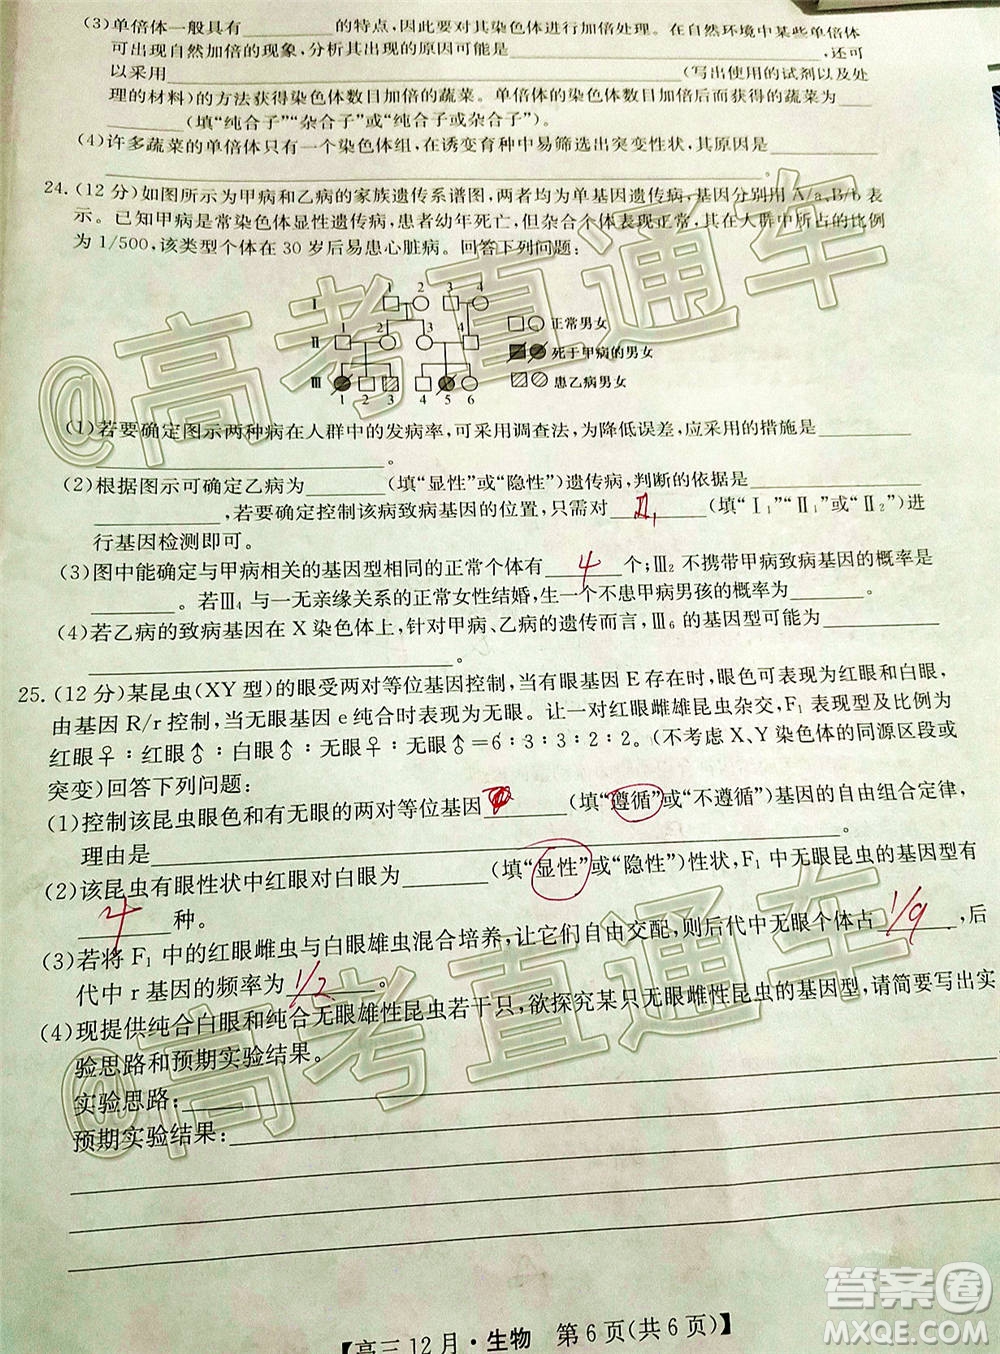 (3)单倍体一般具有________的特点,因此要对其染色体进行加倍处理。在自然环境中某些单倍体
可出现自然加倍的现象,分析其出现的原因可能是________,还可
以采用________(写出使用的试剂以及处
理的材料)的方法获得染色体数目加倍的蔬菜。单倍体的染色体加倍后而获得的蔬菜为____
____(填“纯合子”“杂合子”或“纯合子或杂合子”)。
(4)许多蔬菜的单倍体只有一个染色体组,在诱变育种中易筛选出突变性状,其原因是________
________。
24.(12分)如图所示为甲病和乙病的家族遗传系谱图,两者均为单基因遗传病,基因分别用A/a、B/b表
示。已知甲病是常染色体显性遗传病,患者幼年死亡,但杂合个体表现正常,其在人群中所占的比例
为1/500,该类型个体在30岁后易患心脏病。回答下列问题:
1 2 3 4
Ⅰ
1 2 3 4 5
Ⅱ
Ⅲ
1 2 3 4 5 6
正常男女
死于甲病的男女
患乙病男女
(1)若要确定图示两种病在人群中的发病率,可采用调查法,为降低误差,应采用的措施是________
________。
(2)根据图示可确定乙病为________(填“显性”或“隐性”)遗传病,判断的依据是________
________,若要确定控制该病致病基因的位置,只需对 Ⅱ₁ (填“Ⅰ₁”“Ⅱ₁”或“Ⅱ₂”)进
行基因检测即可。
(3)图中能确定与甲病相关的基因型相同的正常个体有 4 个;Ⅲ₂不携带甲病致病基因的概率是
________。若Ⅲ₄与一无亲缘关系的正常女性结婚,生一不患甲病男孩的概率为________。
(4)若乙病的致病基因在X染色体上,针对甲病、乙病的遗传而言,Ⅲ₆的基因型为________
________。
25.(12分)某昆虫(XY型)的眼受两对等位基因控制,当有眼基因E存在时,表现为红眼和白眼,
由基因R/r控制,当无眼基因e纯合时表现为无眼。让一对红眼雌雄昆虫杂交,F₁表现型及比例为
红眼♀:红眼♂:白眼♂:无眼♀:无眼♂=6:3:3:2:2。(不考虑X、Y染色体的同源区段或
突变)回答下列问题:
(1)控制该昆虫眼色和有无眼的两对等位基因________(填“遵循”或“不遵循”)基因的自由组合定律,
理由是________。
(2)该昆虫有眼性状中红眼对白眼为________(填“显性”或“隐性”)性状,F₁中无眼昆虫的基因型有
4 种。
(3)若将F₁中的红眼雌虫与白眼雄虫混合培养,让它们自由交配,则后代中无眼个体占 1/9 ,后
代中r基因的频率为 1/2 。
(4)现提供纯合白眼和纯合无眼雄性昆虫若干只,欲探究某只无眼雌虫的基因型,请简要写出实
验思路和预期实验结果。
实验思路:________
预期实验结果:________
【高三12月·生物 第6页(共6页)】
@高考直通车
@高考直通车
答案圈
MXQE.COM